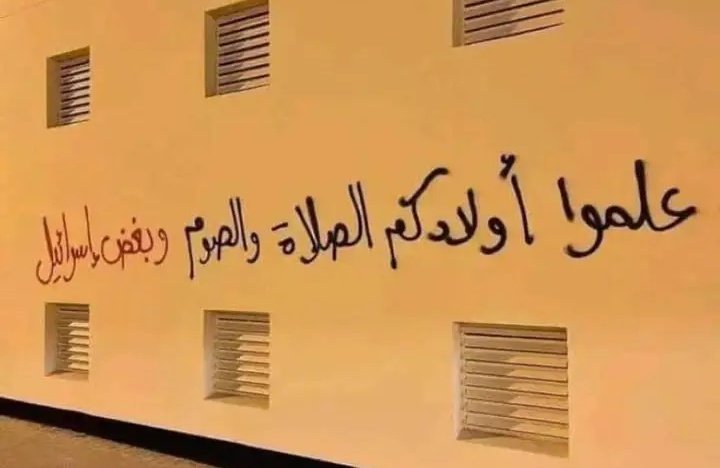 علموا أولادكم الصلاة والصوم وبغض إسرائيل